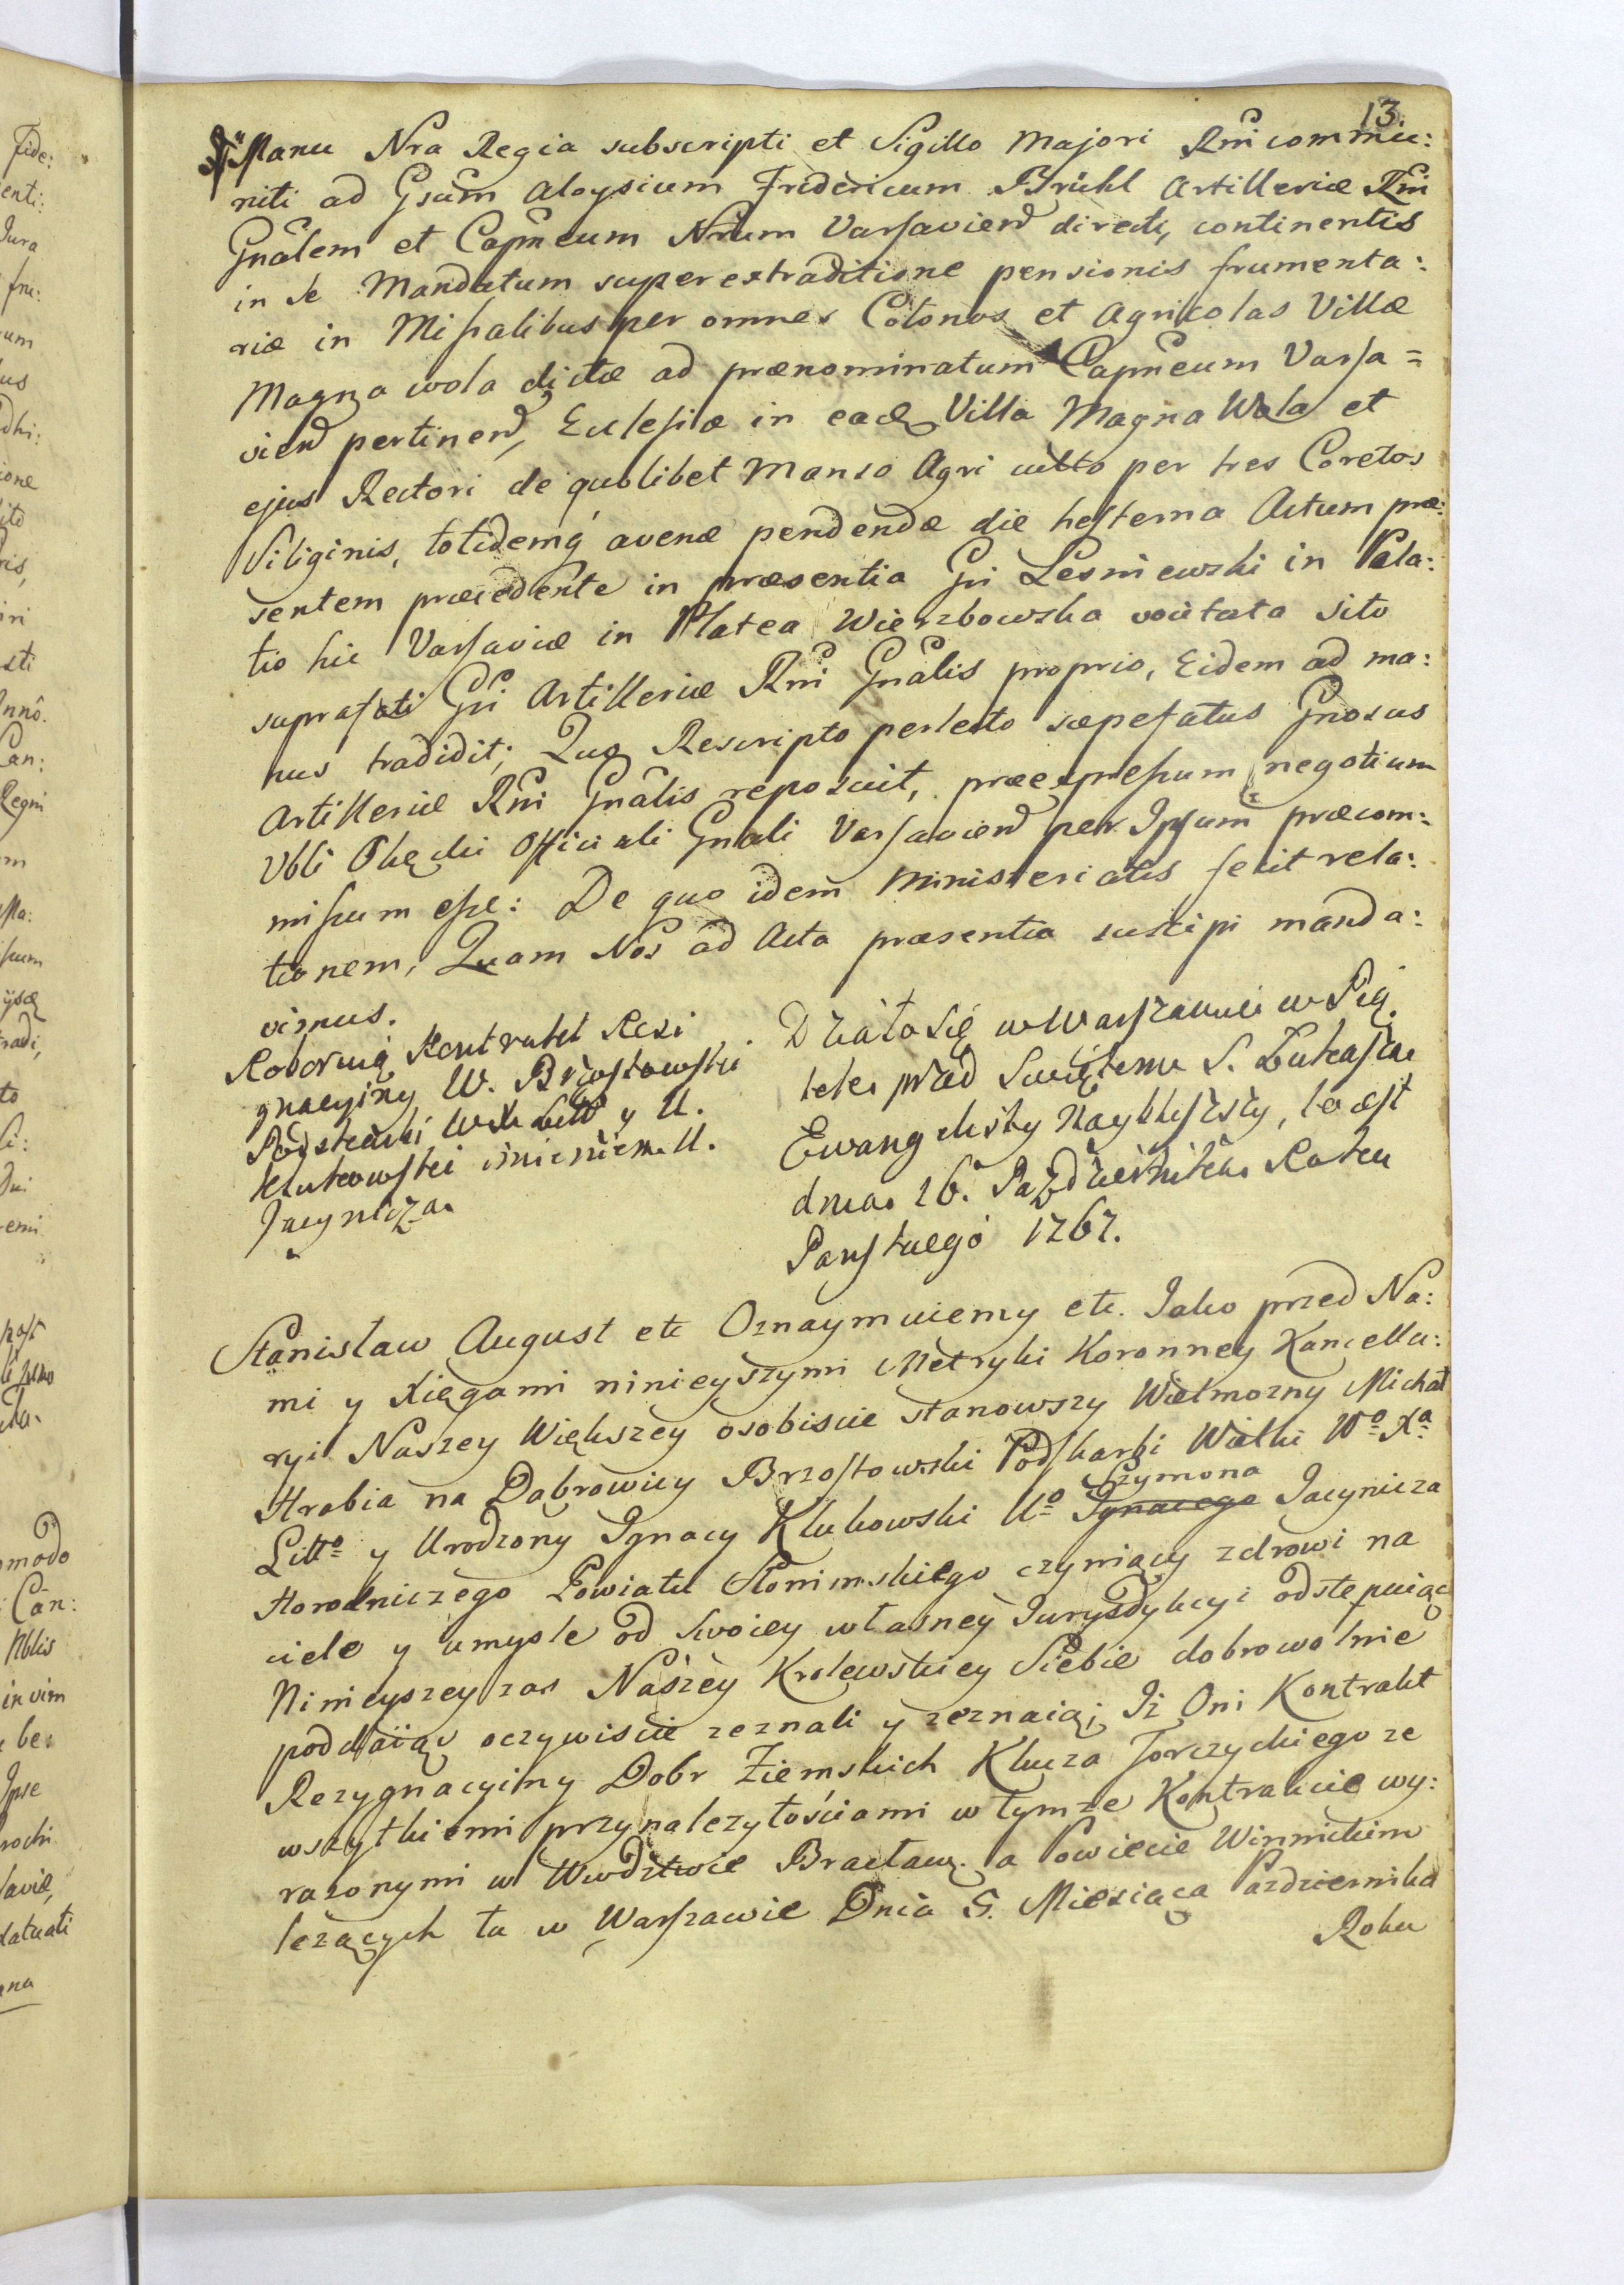 13.
Manu Nra Regia subscripti et Sigillo Majori Rni commu:
niti ad Gsum Aloysium Fridericum Brühl Artilleriæ Rni
Gnalem et Capneum Nrum Varsavien̄ directi, continentis
in se Mandatum super extraditione pensionis frumenta:
riæ in Missalibus per omnes Colonos et Agricolas Villæ
Magna wola dictæ ad prænominatum Capneum Varsa=
vien̄ pertinen̄, Ecclesiæ in eadę Villa Magna Wola et
ejus Rectori de quolibet Manso Agri culto per tres Coretos
Siliginis, totidemq́ avenæ pendendæ die hesterna Actum præ:
sentem præcedente in præsentia Gni Lesniewski in Pala:
tio hic Varsaviæ in Platea Wierzbowska vocitata sito
suprafati Gni Artilleriæ Rni Gnalis proprio, Eidem ad ma:
nus tradidit; Quo Rescripto perlecto sæpefatus Gnosus
Artilleriæ Rni Gnalis reposuit, præexpressum negotium
Vbli Okęcki Officiali Gnali Varsavien̄ per Ipsum præcom:
missum esse: De quo idem Ministerialis fecit rela:
tionem, Quam Nos ad Acta præsentia suscipi manda:
vimus.
Roborują Kontrakt Rezi
gnacyiny W. Brzostowski
Podskarbi W. Litt y U.
Klukowski imieniem U.
Jacynicza.
Działo się w Warszawie w Pią
tek przed Swiętem S. Łukasza
Ewangelisty Nayblisszy, to iest
dnia 16. Pazdziernika Roku
Panskiego 1767.
Stanisław August etc Oznaymuiemy etc. Jako przed Na:
mi y Xięgami ninieyszymi Metryki Koronney Kancella:
ryi Naszey Większey osobiscie stanowszy Wielmozny Michał
Hrabia na Dabrowicy Brzostowski Podskarbi Wielki Wo Xa
Litto y Urodzony Ignacy Klukowski Uo Ignacego Szymona Jacynicza
Horodniczego Powiatu Słonimskiego czyniący zdrowi na
ciele y umysle od swoiey własney Jurysdykcyi odstępuiąc
Ninieyszey zas Naszey Krolewskiey Siebie dobrowolnie
poddaiąc oczywiscie zeznali y zeznaią; Iż Oni Kontrakt
Rezygnacyiny Dobr Ziemskich Klucza Jorczyckiego ze
wszytkiemi przynalezytościami w tymze Kontrakcie wy:
razonymi w Wwdztwie Bracław. a Powiecie Winnickim
lezących tu w Warszawie Dnia 5. Miesiąca Pazdziernika
Roku